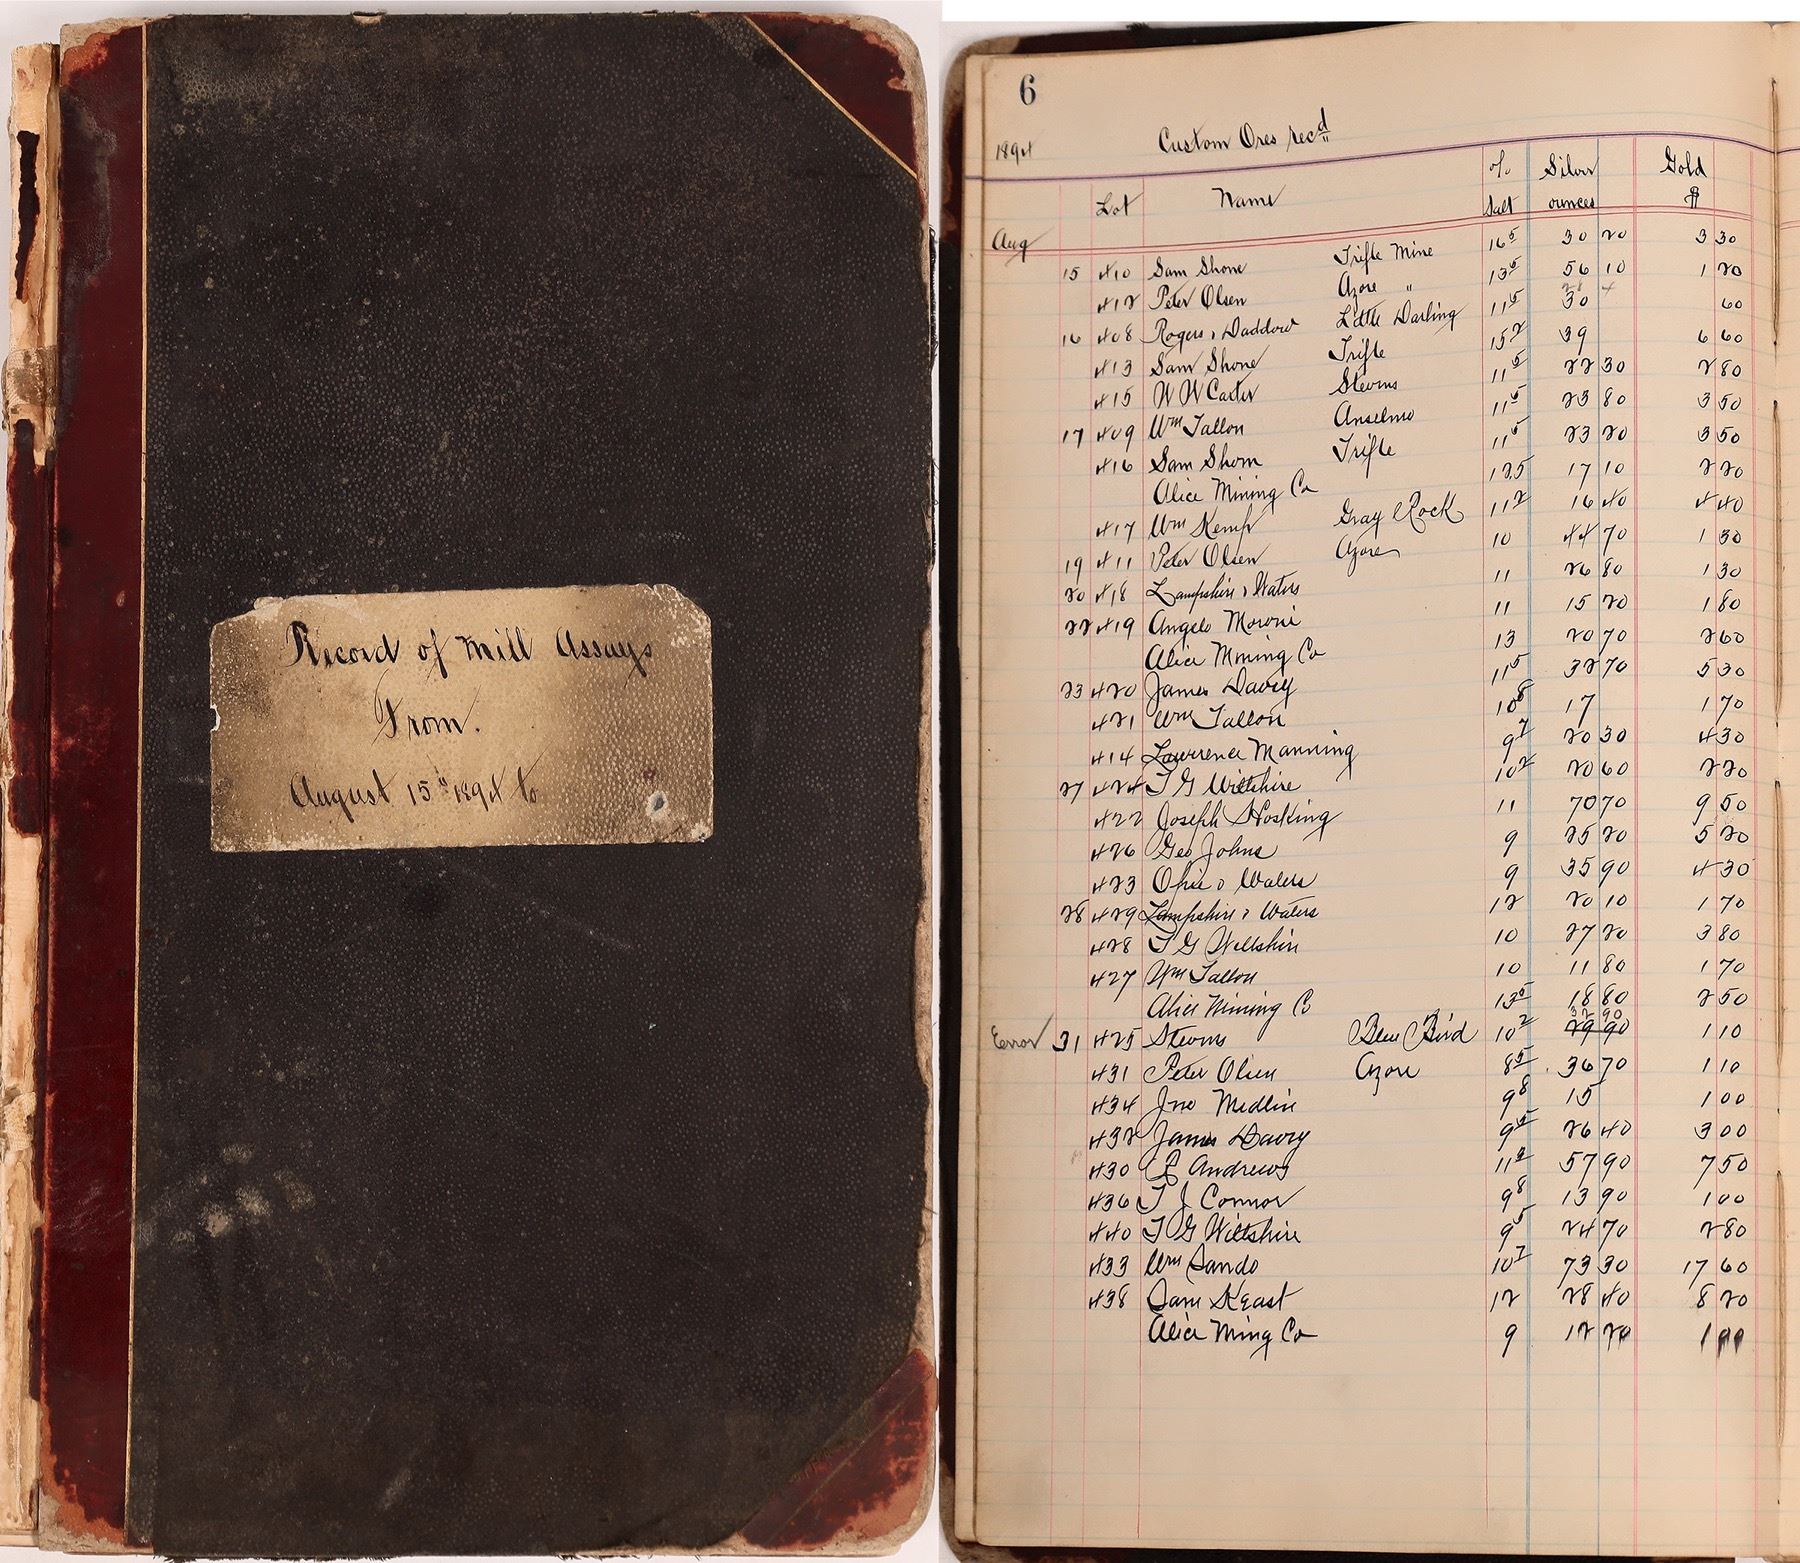 Record of Mill Assays
From.
August 15th 1894 to
6
1894 Custom Ores rec'd
Lot Name % Salt Silver ounces Gold $
Aug
15 410 Sam Shone Trifle Mine 16 5 30 20 3 30
412 Peter Olsen Azore " 13 5 56 10 1 20
16 408 Rogers & Daddow Little Darling 11 5 30 60
413 Sam Shone Trifle 15 2 39 6 60
415 W W Carter Stevens 11 5 22 30 2 80
17 409 Wm Tallon Anselmo 11 5 23 80 3 50
416 Sam Shone Trifle 11 5 23 20 3 50
Alice Mining Co 12.5 17 10 2 20
417 Wm Kemp Gray Rock 11 2 16 40 4 40
19 411 Peter Olsen Azore 10 44 70 1 30
20 418 Lampshire & Waters 11 26 80 1 30
22 419 Angelo Moroni 11 15 20 1 80
Alice Mining Co 13 20 70 2 60
23 420 James Davey 11 5 32 70 5 30
421 Wm Tallon 10 8 17 1 70
414 Lawrence Manning 9 7 20 30 4 30
27 424 T G Wiltshire 10 2 20 60 2 20
422 Joseph Hosking 11 70 70 9 50
426 Geo Johns 9 25 20 5 20
423 Opie & Waters 9 35 90 4 30
28 429 Lampshire & Waters 12 20 10 1 70
428 T G Wiltshire 10 27 20 3 80
427 Wm Tallon 10 11 80 1 70
Alice Mining Co 13 5 18 80 2 50
32 90
Error 31 425 Stevens Blue Bird 10 2 29 90 1 10
431 Peter Olsen Azore 8 5 36 70 1 10
434 Jno Medlin 9 8 15 1 00
432 James Davey 9 5 26 40 3 00
430 Andrews 11 2 57 90 7 50
436 T J Connor 9 8 13 90 1 00
440 T G Wiltshire 9 5 24 70 2 80
433 Wm Sando 10 7 73 30 17 60
438 Sam Keast 12 28 40 8 20
Alice Ming Co 9 12 20 1